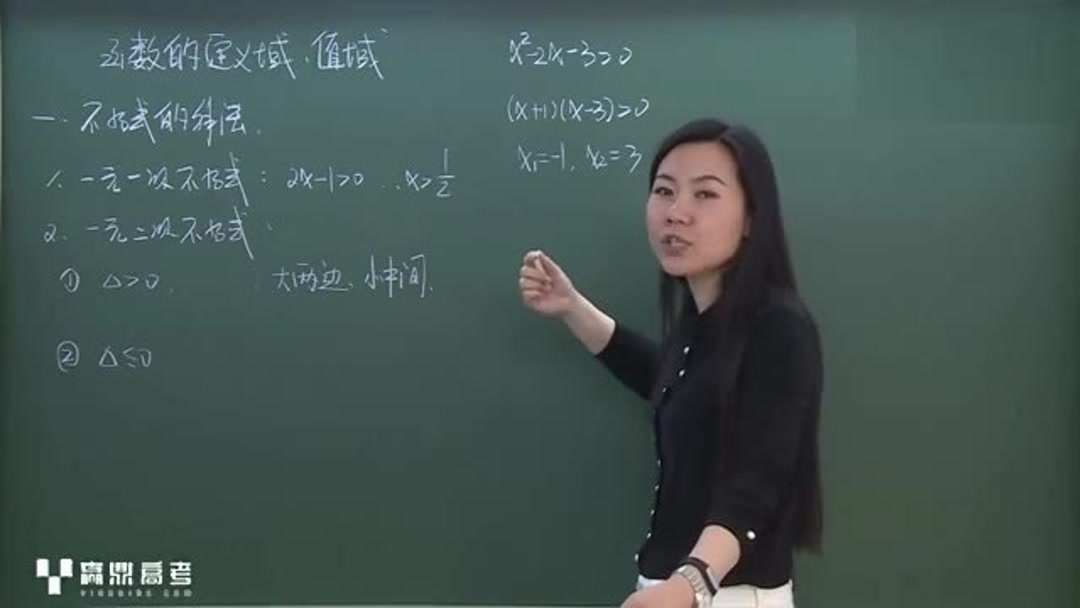 函数的定义域、值域
一.不等式的解法.
1.一元一次不等式:2x-1>0 ∴x>1/2
2.一元二次不等式:
① Δ>0. :大两边、小中间.
② Δ≤0
x²-2x-3>0
(x+1)(x-3)>0
x₁=-1, x₂=3
赢鼎高考